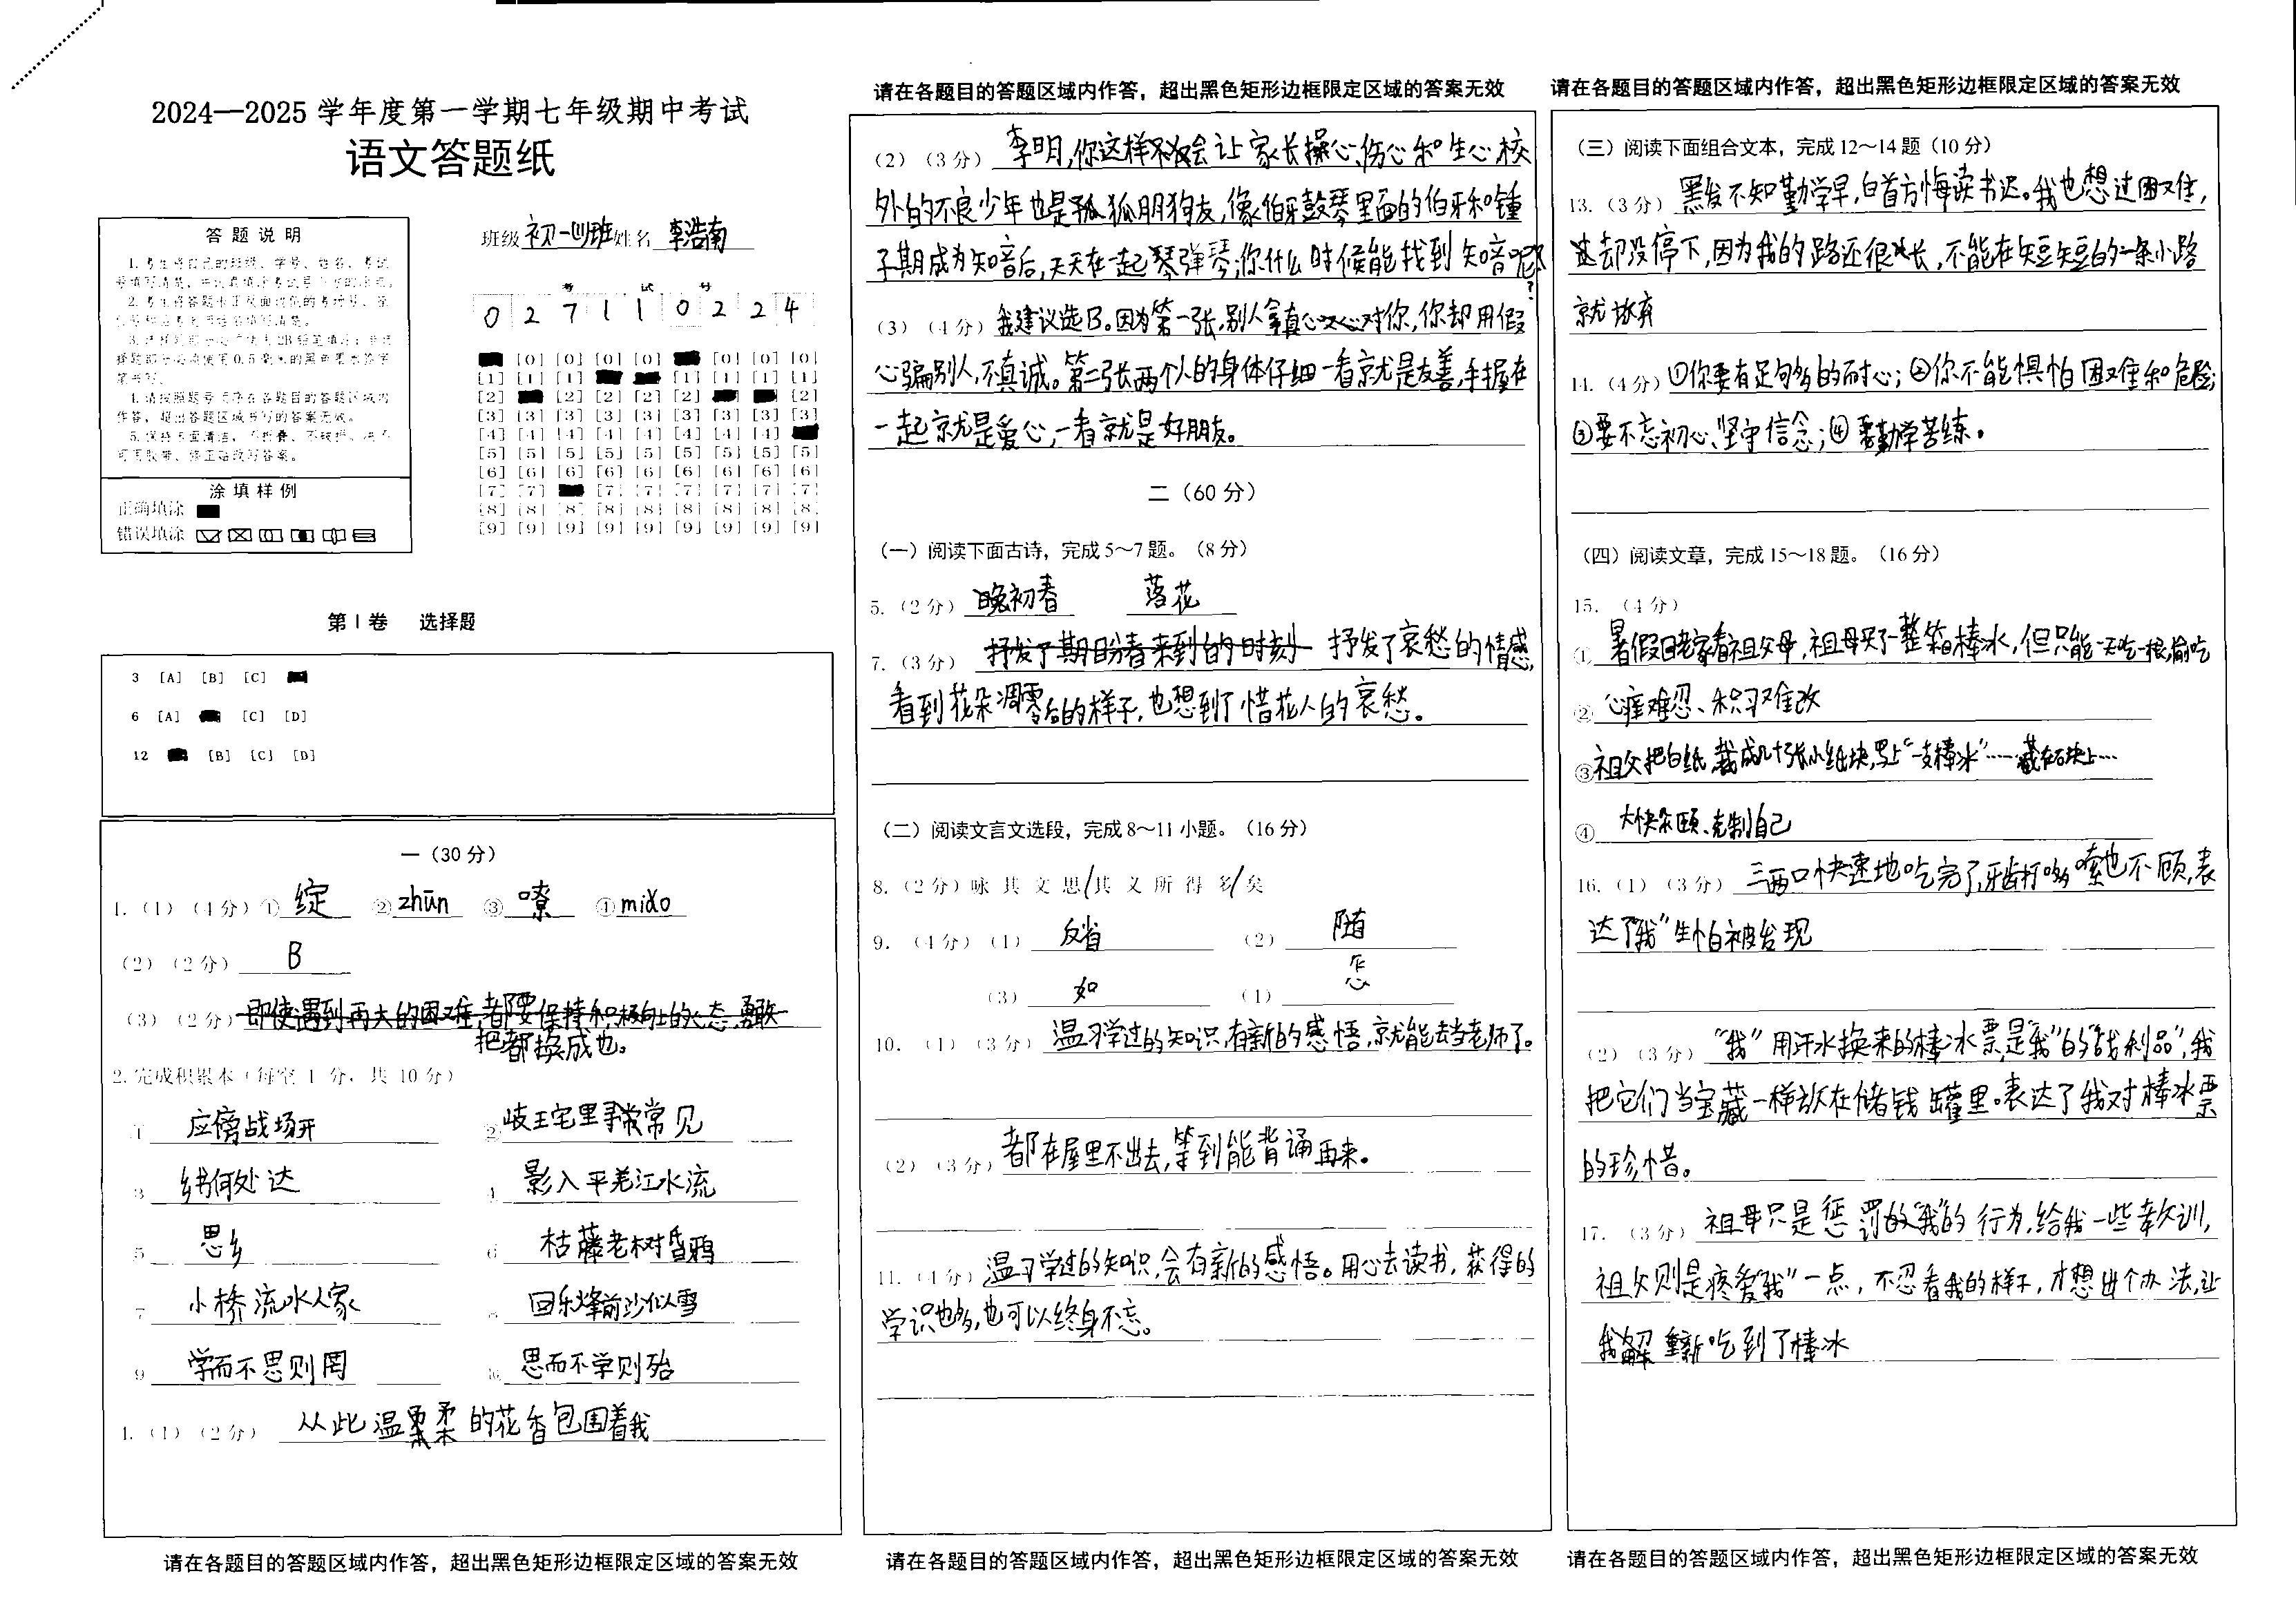 2024—2025 学年度第一学期七年级期中考试
语文答题纸
班级 初一四班 姓名 李浩南
答题说明
考 试 号
0 2 7 1 1 0 2 2 4
[0] [0] [0] [0] [0] [0] [0]
[1] [1] [1] [1] [1] [1] [1]
[2] [2] [2] [2] [2] [2]
[3] [3] [3] [3] [3] [3] [3] [3] [3]
[4] [4] [4] [4] [4] [4] [4] [4]
[5] [5] [5] [5] [5] [5] [5] [5] [5]
[6] [6] [6] [6] [6] [6] [6] [6] [6]
[7] [7] [7] [7] [7] [7] [7] [7]
[8] [8] [8] [8] [8] [8] [8] [8] [8]
[9] [9] [9] [9] [9] [9] [9] [9] [9]
涂填样例
正确填涂
错误填涂
第Ⅰ卷 选择题
3 [A] [B] [C]
6 [A] [C] [D]
12 [B] [C] [D]
一（30 分）
1.（1）（4分）① 绽 ② zhūn ③ 嘹 ④ miǎo
（2）（2分） B
（3）（2分） 即使遇到再大的困难,都要保持积极向上的心态,勇敢
把都换成也。
2. 完成积累本（每空 1 分，共 10 分）
1 应傍战场开
2 岐王宅里寻常见
3 乡书何处达
4 影入平羌江水流
5 思乡
6 枯藤老树昏鸦
7 小桥流水人家
8 回乐烽前沙似雪
9 学而不思则罔
10 思而不学则殆
4.（1）（2分） 从此温柔的花香包围着我
请在各题目的答题区域内作答，超出黑色矩形边框限定区域的答案无效
请在各题目的答题区域内作答，超出黑色矩形边框限定区域的答案无效
（2）（3分） 李明,你这样不仅会让家长操心、伤心和生心,校
外的不良少年也是狐朋狗友,像伯牙鼓琴里面的伯牙和锺
子期成为知音后,天天在一起琴弹琴,你什么时候能找到知音呢?
（3）（4分） 我建议选B。因为第一张,别人拿真心对你,你却用假
心骗别人,不真诚。第二张两个人的身体仔细一看就是友善,手握在
一起就是爱心,一看就是好朋友。
二（60 分）
（一）阅读下面古诗，完成 5～7 题。（8 分）
5.（2分） 晚初春 落花
7.（3分） 抒发了期盼春来到的时刻 抒发了哀愁的情感,
看到花朵凋零后的样子,也想到了惜花人的哀愁。
（二）阅读文言文选段，完成 8～11 小题。（16 分）
8.（2分）咏 其 文 思/其 义 所 得 多/矣
9.（4分）（1） 反省 （2） 随
（3） 如 （4） 怎
10.（1）（3分） 温习学过的知识,有新的感悟,就能去当老师了。
（2）（3分） 都在屋里不出去,等到能背诵再来。
11.（4分） 温习学过的知识,会有新的感悟。用心去读书,获得的
学识也多,也可以终身不忘。
请在各题目的答题区域内作答，超出黑色矩形边框限定区域的答案无效
请在各题目的答题区域内作答，超出黑色矩形边框限定区域的答案无效
（三）阅读下面组合文本，完成 12～14 题（10 分）
13.（3分） 黑发不知勤学早,白首方悔读书迟。我也想过困难,
这却没停下,因为我的路还很长,不能在短短的一条小路
就放弃
14.（4分） ①你要有足够多的耐心;②你不能惧怕困难和危险;
③要不忘初心、坚守信念;④要勤学苦练。
（四）阅读文章，完成 15～18 题。（16 分）
15.（4分）
① 暑假回老家看祖父母,祖母买了一整箱棒冰,但只能一天吃一根,偷吃
② 心痒难忍、积习难改
③ 祖父把白纸裁成几十张小纸块,写上“一支棒冰”……藏在石块上…
④ 大快朵颐、克制自己
16.（1）（3分） 三两口快速地吃完了,牙齿打哆嗦也不顾,表
达了“我”生怕被发现
（2）（3分） “我”用汗水换来的棒冰票,是“我”的“战利品”,我
把它们当宝藏一样放在储钱罐里。表达了我对棒冰票
的珍惜。
17.（3分） 祖母只是惩罚“我”的行为,给我一些教训,
祖父则是疼爱“我”一点,不忍看我的样子,才想出个办法,让
我重新吃到了棒冰
请在各题目的答题区域内作答，超出黑色矩形边框限定区域的答案无效